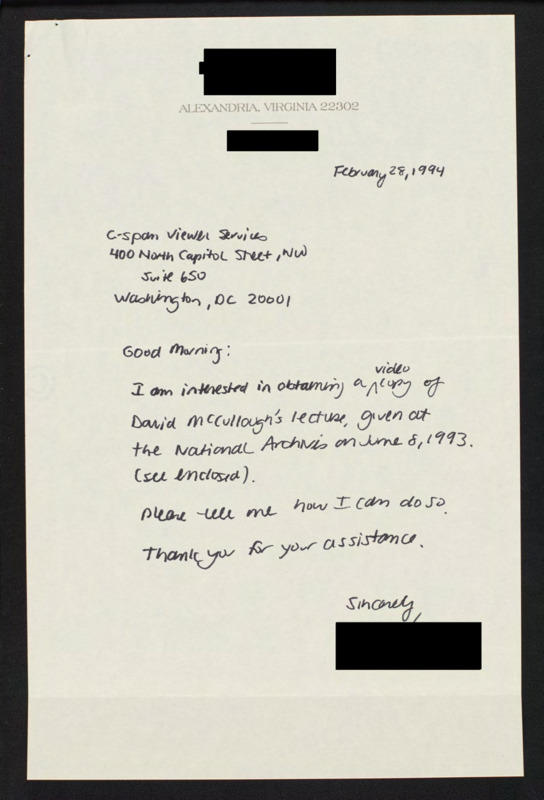 ALEXANDRIA, VIRGINIA 22302
February 28, 1994
C-span Viewer Services
400 North Capitol Street, NW
Suite 650
Washington, DC 20001
Good Morning:
I am interested in obtaining a video copy of
David McCullough's lecture, given at
the National Archives on June 8, 1993.
(see enclosed).
Please tell me how I can do so.
Thank you for your assistance.
Sincerely,